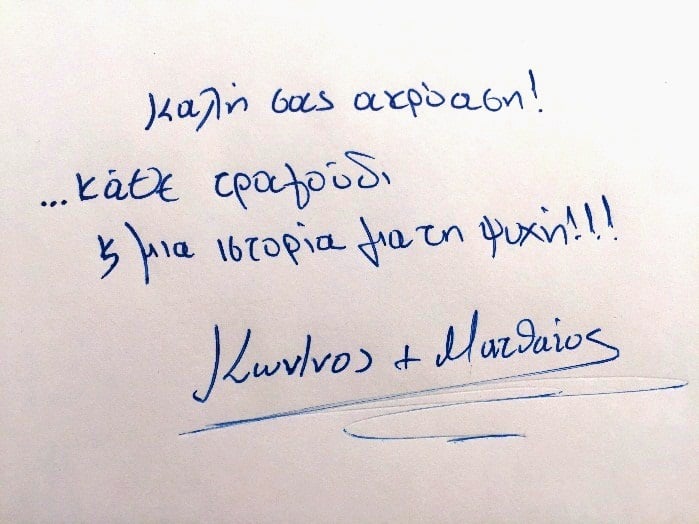 Καλή σας ακρόαση!
...κάθε τραγούδι
ϗ μια ιστορία για τη ψυχή!!!
Κων/νος + Ματθαίος